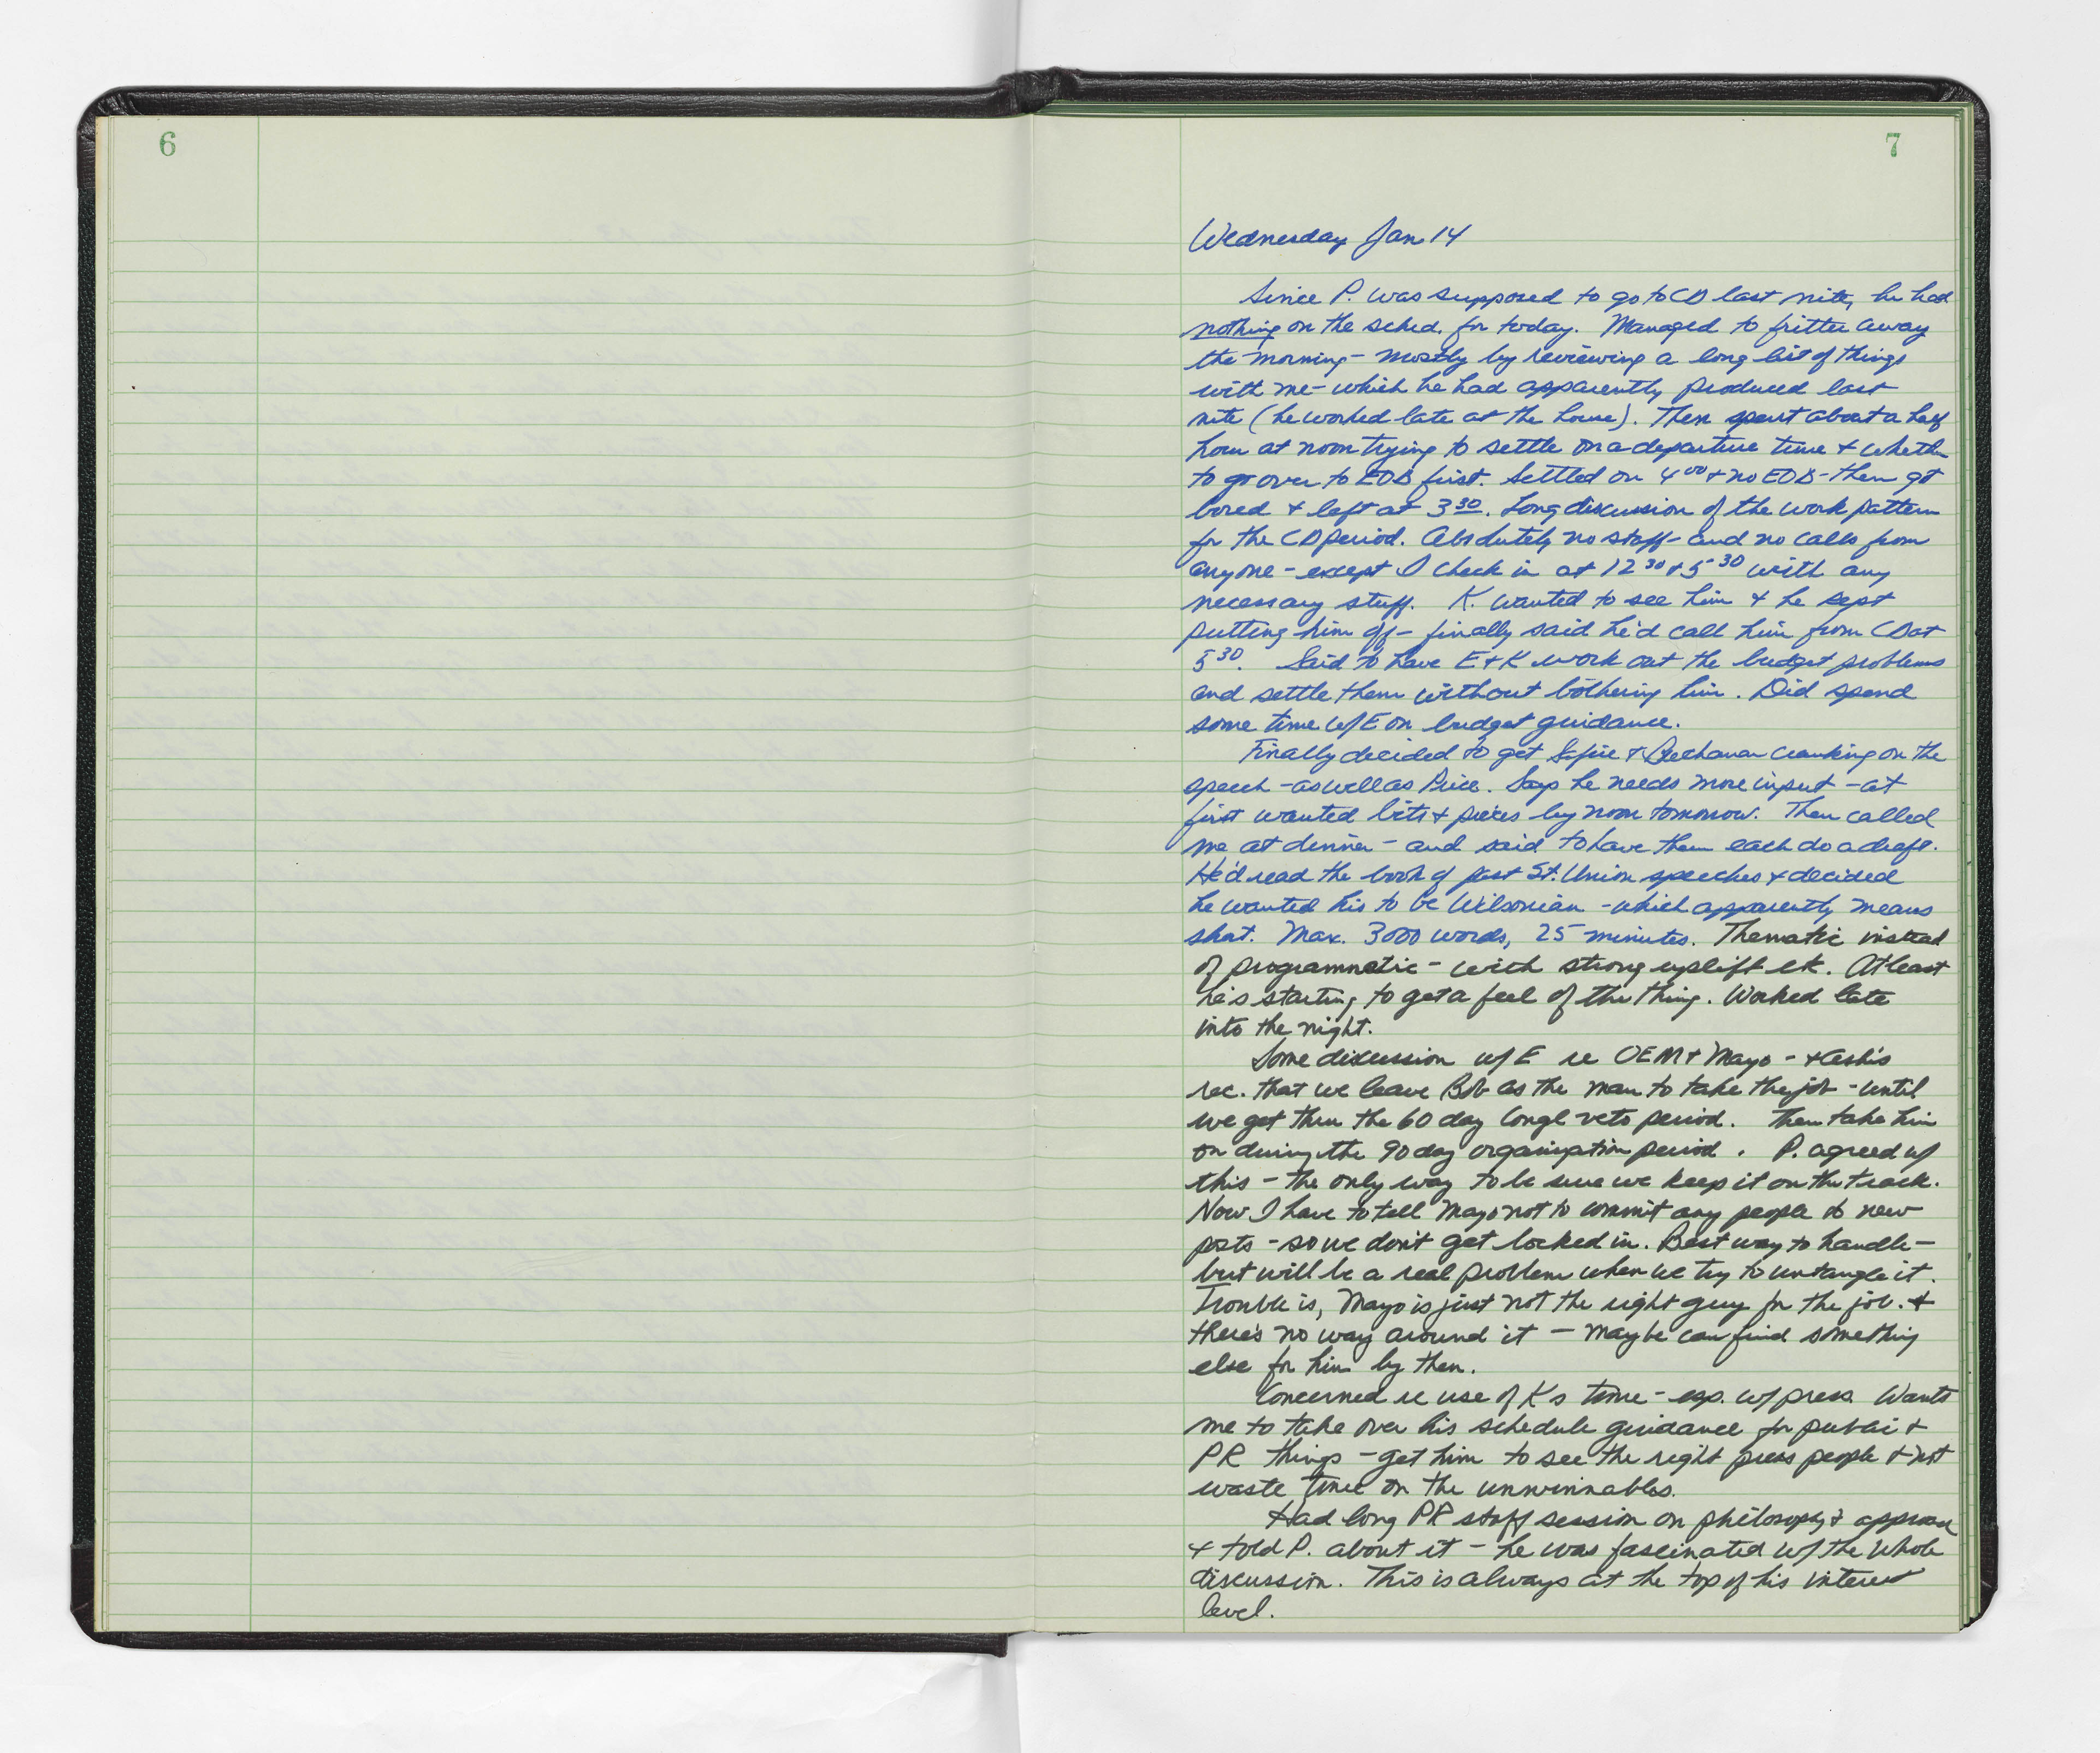 6
7
Wednesday Jan 14
Since P. was supposed to go to CD last nite, he had
nothing on the sched. for today. Managed to fritter away
the morning - mostly by reviewing a long list of things
with me - which he had apparently produced last
nite (he worked late at the house). Then spent about a half
hour at noon trying to settle on a departure time + whether
to go over to EOB first. Settled on 4⁰⁰ + no EOB - then got
bored + left at 3³⁰. Long discussion of the work pattern
for the CD period. Absolutely no staff - and no calls from
anyone - except I check in at 12³⁰ + 5³⁰ with any
necessary stuff. K. wanted to see him + he kept
putting him off - finally said he'd call him from CD at
5³⁰. Said to have E + K work out the budget problems
and settle them without bothering him. Did spend
some time w/ E on budget guidance.
Finally decided to get Safire + Buchanan cranking on the
speech - as well as Price. Says he needs more input - at
first wanted bits + pieces by noon tomorrow. Then called
me at dinner - and said to have them each do a draft.
He'd read the book of past St. Union speeches + decided
he wanted his to be Wilsonian - which apparently means
short. Max. 3000 words, 25 minutes. Thematic instead
of programmatic - with strong uplift etc. At least
he's starting to get a feel of the thing. Worked late
into the night.
Some discussion w/ E re OEM + Mayo - + Ash's
rec. that we leave Bob as the man to take the job - until
we get thru the 60 day Congl veto period. Then take him
on during the 90 day organization period. P. agreed w/
this - the only way to be sure we keep it on the track.
Now I have to tell Mayo not to commit any people to new
posts - so we don't get locked in. Best way to handle -
but will be a real problem when we try to untangle it.
Trouble is, Mayo is just not the right guy for the job. +
there's no way around it - maybe can find something
else for him by then.
Concerned re use of K's time - esp. w/ press. Wants
me to take over his schedule guidance for +
PR things - get him to see the right press people + not
waste time on the unwinnables.
Had long PR staff session on philosophy + approach
+ told P. about it - he was fascinated w/ the whole
discussion. This is always at the top of his interest
level.